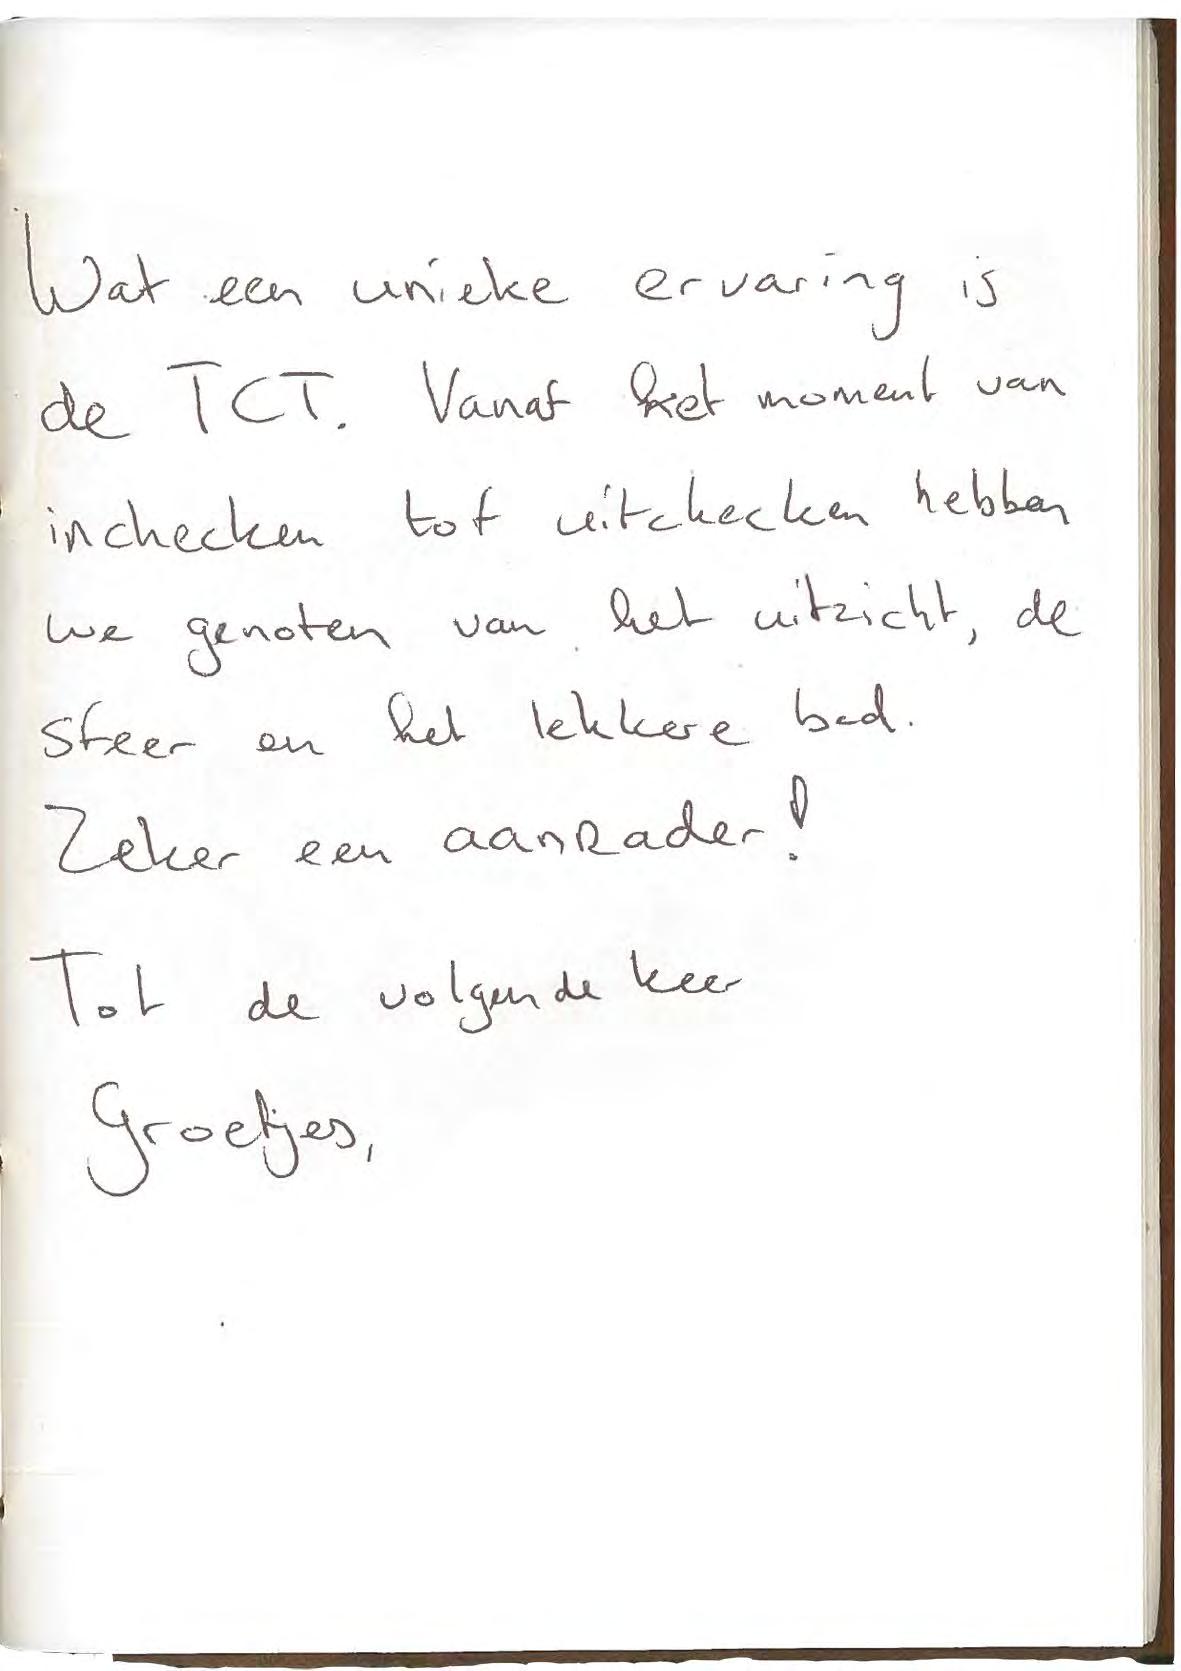 Wat een unieke ervaring is
de TCT. Vanaf het moment van
inchecken tot uitchecken hebben
we genoten van het uitzicht, de
sfeer en het lekkere bed.
Zeker een aanRader!
Tot de volgende keer
Groetjes,